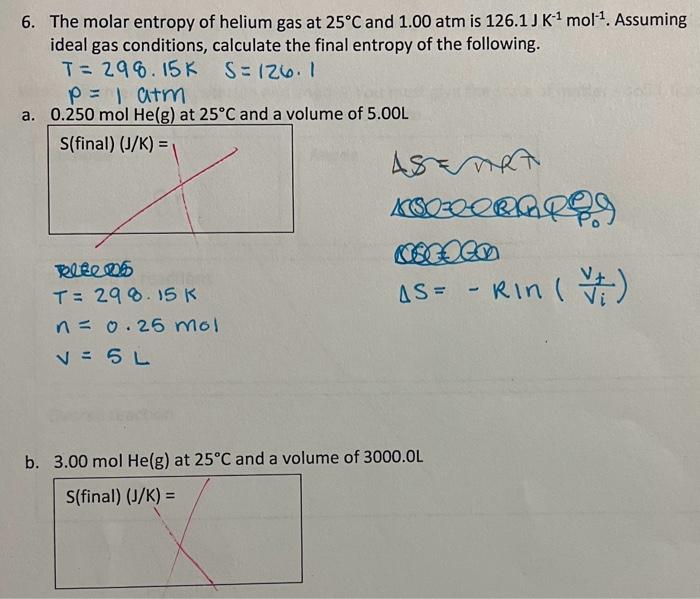 6. The molar entropy of helium gas at 25°C and 1.00 atm is 126.1 J K⁻¹ mol⁻¹. Assuming
ideal gas conditions, calculate the final entropy of the following.
T = 298.15K S = 126.1
P = 1 atm
a. 0.250 mol He(g) at 25°C and a volume of 5.00L
S(final) (J/K) =
ΔS = nRT
T = 298.15 K
n = 0.25 mol
V = 5 L
ΔS = - Rln ( Vf/Vi )
b. 3.00 mol He(g) at 25°C and a volume of 3000.0L
S(final) (J/K) =